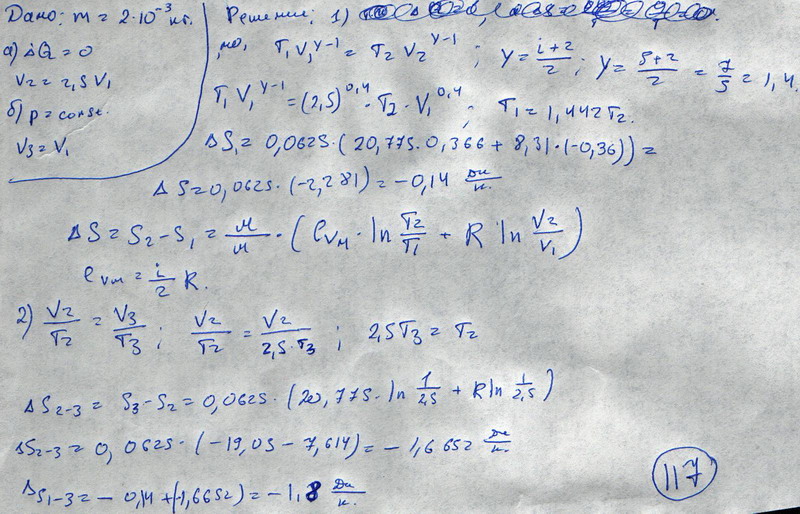 Дано: m = 2·10⁻³ кг. Решение: 1)
а) ΔQ = 0
V₂ = 2,5 V₁
б) p = const.
V₃ = V₁
T₁V₁^γ⁻¹ = T₂V₂^γ⁻¹ ; γ = (i+2)/2 ; γ = (5+2)/2 = 7/5 = 1,4.
T₁V₁^γ⁻¹ = (2,5)^0,4 · T₂ · V₁^0,4 ; T₁ = 1,442T₂.
ΔS₁ = 0,0625·(20,775·0,366 + 8,31·(-0,36)) =
ΔS = 0,0625·(-2,281) = -0,14 Дж/К.
ΔS = S₂ - S₁ = м/м · (C_Vм · ln T₂/T₁ + R ln V₂/V₁)
C_Vм = i/2 R.
2) V₂/T₂ = V₃/T₃ ; V₂/T₂ = V₂/(2,5·T₃) ; 2,5T₃ = T₂
ΔS₂₋₃ = S₃ - S₂ = 0,0625·(20,775·ln 1/2,5 + R ln 1/2,5)
ΔS₂₋₃ = 0,0625·(-19,05 - 7,614) = -1,6652 Дж/К.
ΔS₁₋₃ = -0,14 + (-1,6652) = -1,8 Дж/К.
117